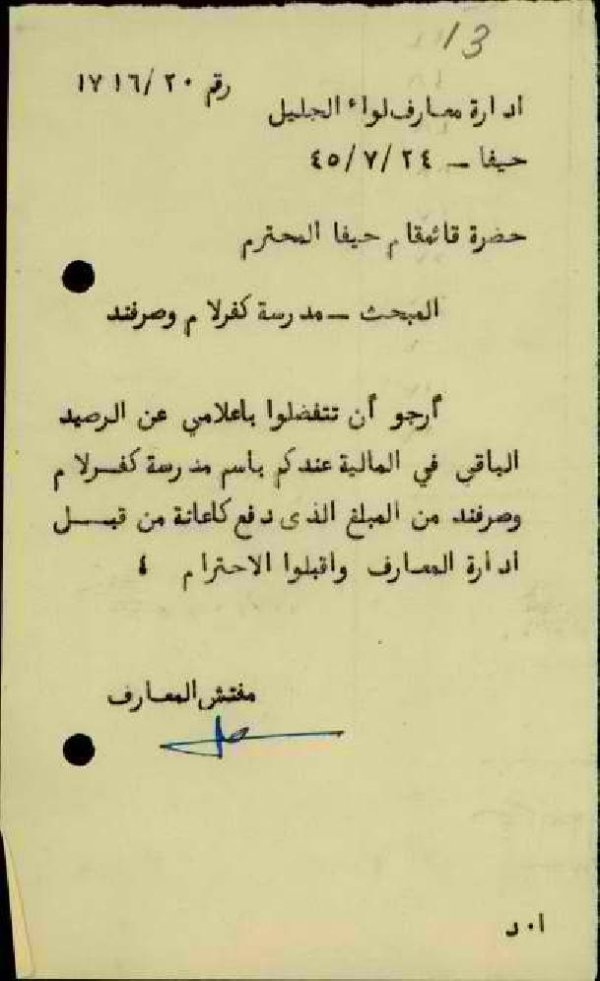 13
رقم ١٧١٦/٢٠
ادارة معارف لواء الجليل
حيفا ـ ٤٥/٧/٢٤
حضرة قائمقام حيفا المحترم
المبحث ـ مدرسة كفرلام وصرفند
أرجو أن تتفضلوا باعلامي عن الرصيد
الباقي في المالية عندكم باسم مدرسة كفرلام
وصرفند من المبلغ الذى دفع كاعانة من قبل
ادارة المعارف واقبلوا الاحترام ،
مفتش المعارف
ا٠د